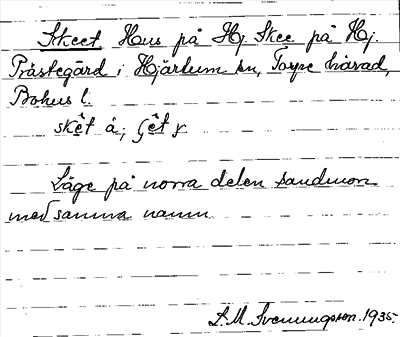 Skeet Hus på Hj. Skee på Hj.
Prästegård i Hjärtum sn, Torpe härad,
Bohus l.
skêt å; çêt y
Läge på norra delen sandmon
med samma namn
L. M. Svenungsson. 1935.